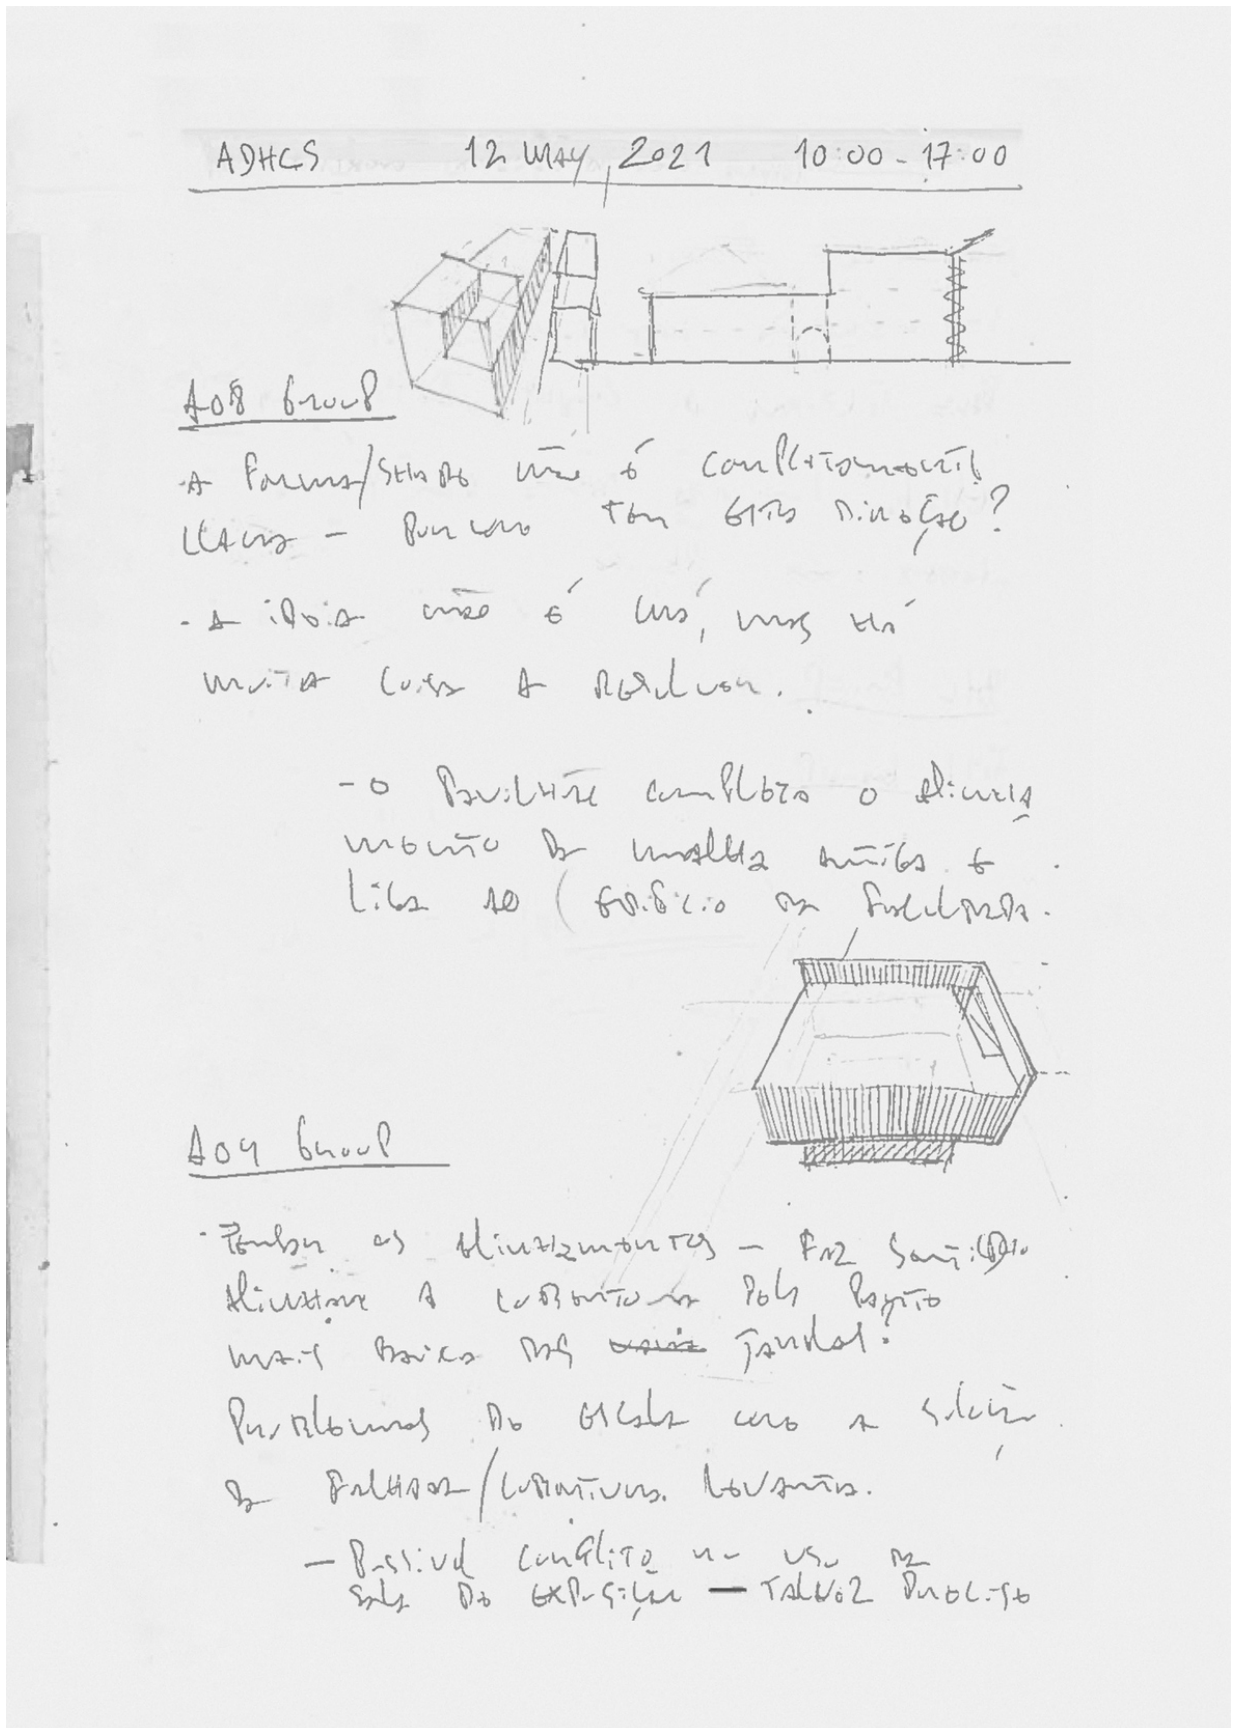 ADHCS 12 MAY, 2021 10:00 - 17:00
A08 Group
- A Forma/SHAPE não é completamente
clara - Porque tem esta direção?
- A ideia não é má, mas há
muita coisa a resolver.
- o Pavilhão completa o alinha
mento da malha antiga e
liga ao edifício da Faculdade.
A04 Group
os alinhamentos - Faz sentido
alinhar a cobertura pela parte
mais baixa das janelas?
Problemas de escala com a solução
da palhada/cobertura
- Possível conflito no uso da
sala de exposição - talvez preciso